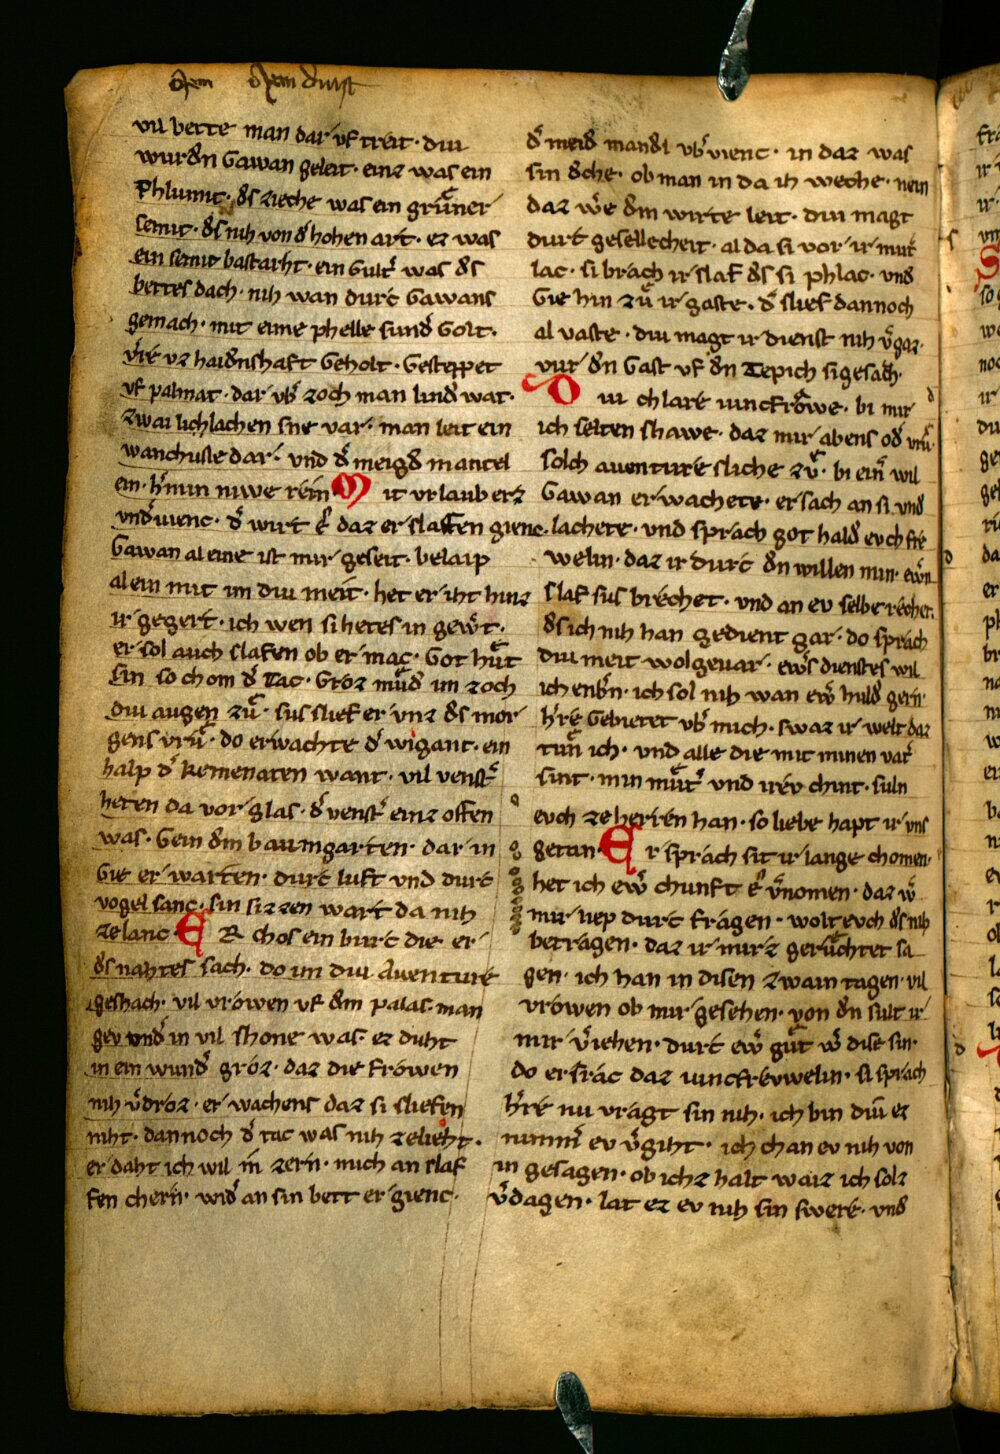 vil bette man dar vf treit · diu
wurdn Gawan geleit · einz was ein
Phlumit · ds zieche was ein grůner
semit · ds nih von d hohen art · ez was
ein semit bastarht · ein Gultˀ was ds
bettes dach · nih wan durc Gawans
gemach · mit eime phelle sundˀ Golt ·
vˀre vz haidnshaft Geholt · Gesteppet
vf palmat · dar vbˀ zoch man lindˀ wat ·
zwai lichlachen sne var · man leit ein
wanchusse dar · und dˀ meigdˀ mantel
ein · hˀmin niwe rein M it vrlaub erz
vndˀvienc · dˀ wirt eˀ daz er slaffen gienc ·
Gawan al eine ist mir geseit · belaip
al ein mit im diu meit · het er iht hinz
ir gegert · ich wen si hetes in gewˀt ·
er sol auch slafen ob er mac · Got hůt
sin so chom dˀ Tac · Groz můd im zoch
diu augen zů · sus slief er vnz ds mor
gens vrů · do erwachte dˀ wigant · ein
halp dˀ kemenaten want · vil venstˀ
heten da vor glas · dˀ venstˀ einz offen
was · Gein dm baumgarten · dar in
Gie er warten · durc luft und durc
vogel sanc · sin sizzen wart da nih
ze lanc E R chos ein burc die er
ds nahtes sach · do im diu Aventure
geshach · vil vrowen vf dm palas · man
gev undˀ in vil shone was · ez duht
in ein wundˀ groz · daz die frowen
nih vˀdroz · er wachens daz si sliefen
niht · dannoch dˀ tac was nih ze lieht ·
er daht ich wil in zern · mich an slaf
fen chern · widˀ an sin bett er gienc ·
dˀ meidˀ mandl vbˀvienc · in daz was
sin dche · ob man in da ih weche · nein
daz wˀe dm wirte leit · diu magt
durc gesellecheit · al da si vor ir mutˀ
lac · si brach ir slaf ds si phlac · und
Gie hin zů ir gaste · dˀ slief dannoch
al vaste · diu magt ir dienst nih vˀgaz ·
vur dn Gast vf dn Tepich si gesazh ·
D iu chlare iuncfrowe · bi mir
ich selten shawe · daz mir abens odˀ vrů ·
solch aventure sliche zů · bi einˀ wil
Gawan erwachete · er sach an si und
lachete · und sprach got haldˀ evch fre
welin · daz ir durc dn willen min · ewˀn
slaf sus brechet · und an ev selbe rechet ·
ds ich nih han gedient gar · do sprach
diu meit wolgevar · ewˀs dienstes wil
ich enbˀn · ich sol nih wan ewˀ huldˀ gern ·
hˀre Gebietet vbˀ mich · swaz ir welt daz
tůn ich · und alle die mit minen vatˀ
sint · min můtˀ und irev chint · suln
evch ze herren han · so liebe hapt ir vns
getan · E r sprach sit ir lange chomen ·
het ich ewˀ chunft eˀ vˀnomen · daz wˀ
mir liep durc fragen · wolt evch ds nih
betragen · daz ir mirz geruchtet sa
gen · ich han in disen zwain tagen · vil
vrowen ob mir gesehen · von dn sult ir
mir vˀiehen · durc ewˀ gůt wˀ dise sin ·
do ersrac daz iuncfrevwelin · si sprach
hˀre nu vragt sin nih · ich bin diu ez
nimmˀ ev vˀgiht · ich chan ev nih von
in gesagen · ob ichz halt waiz ich solz
vˀdagen · lat ez ev nih sin swere · und